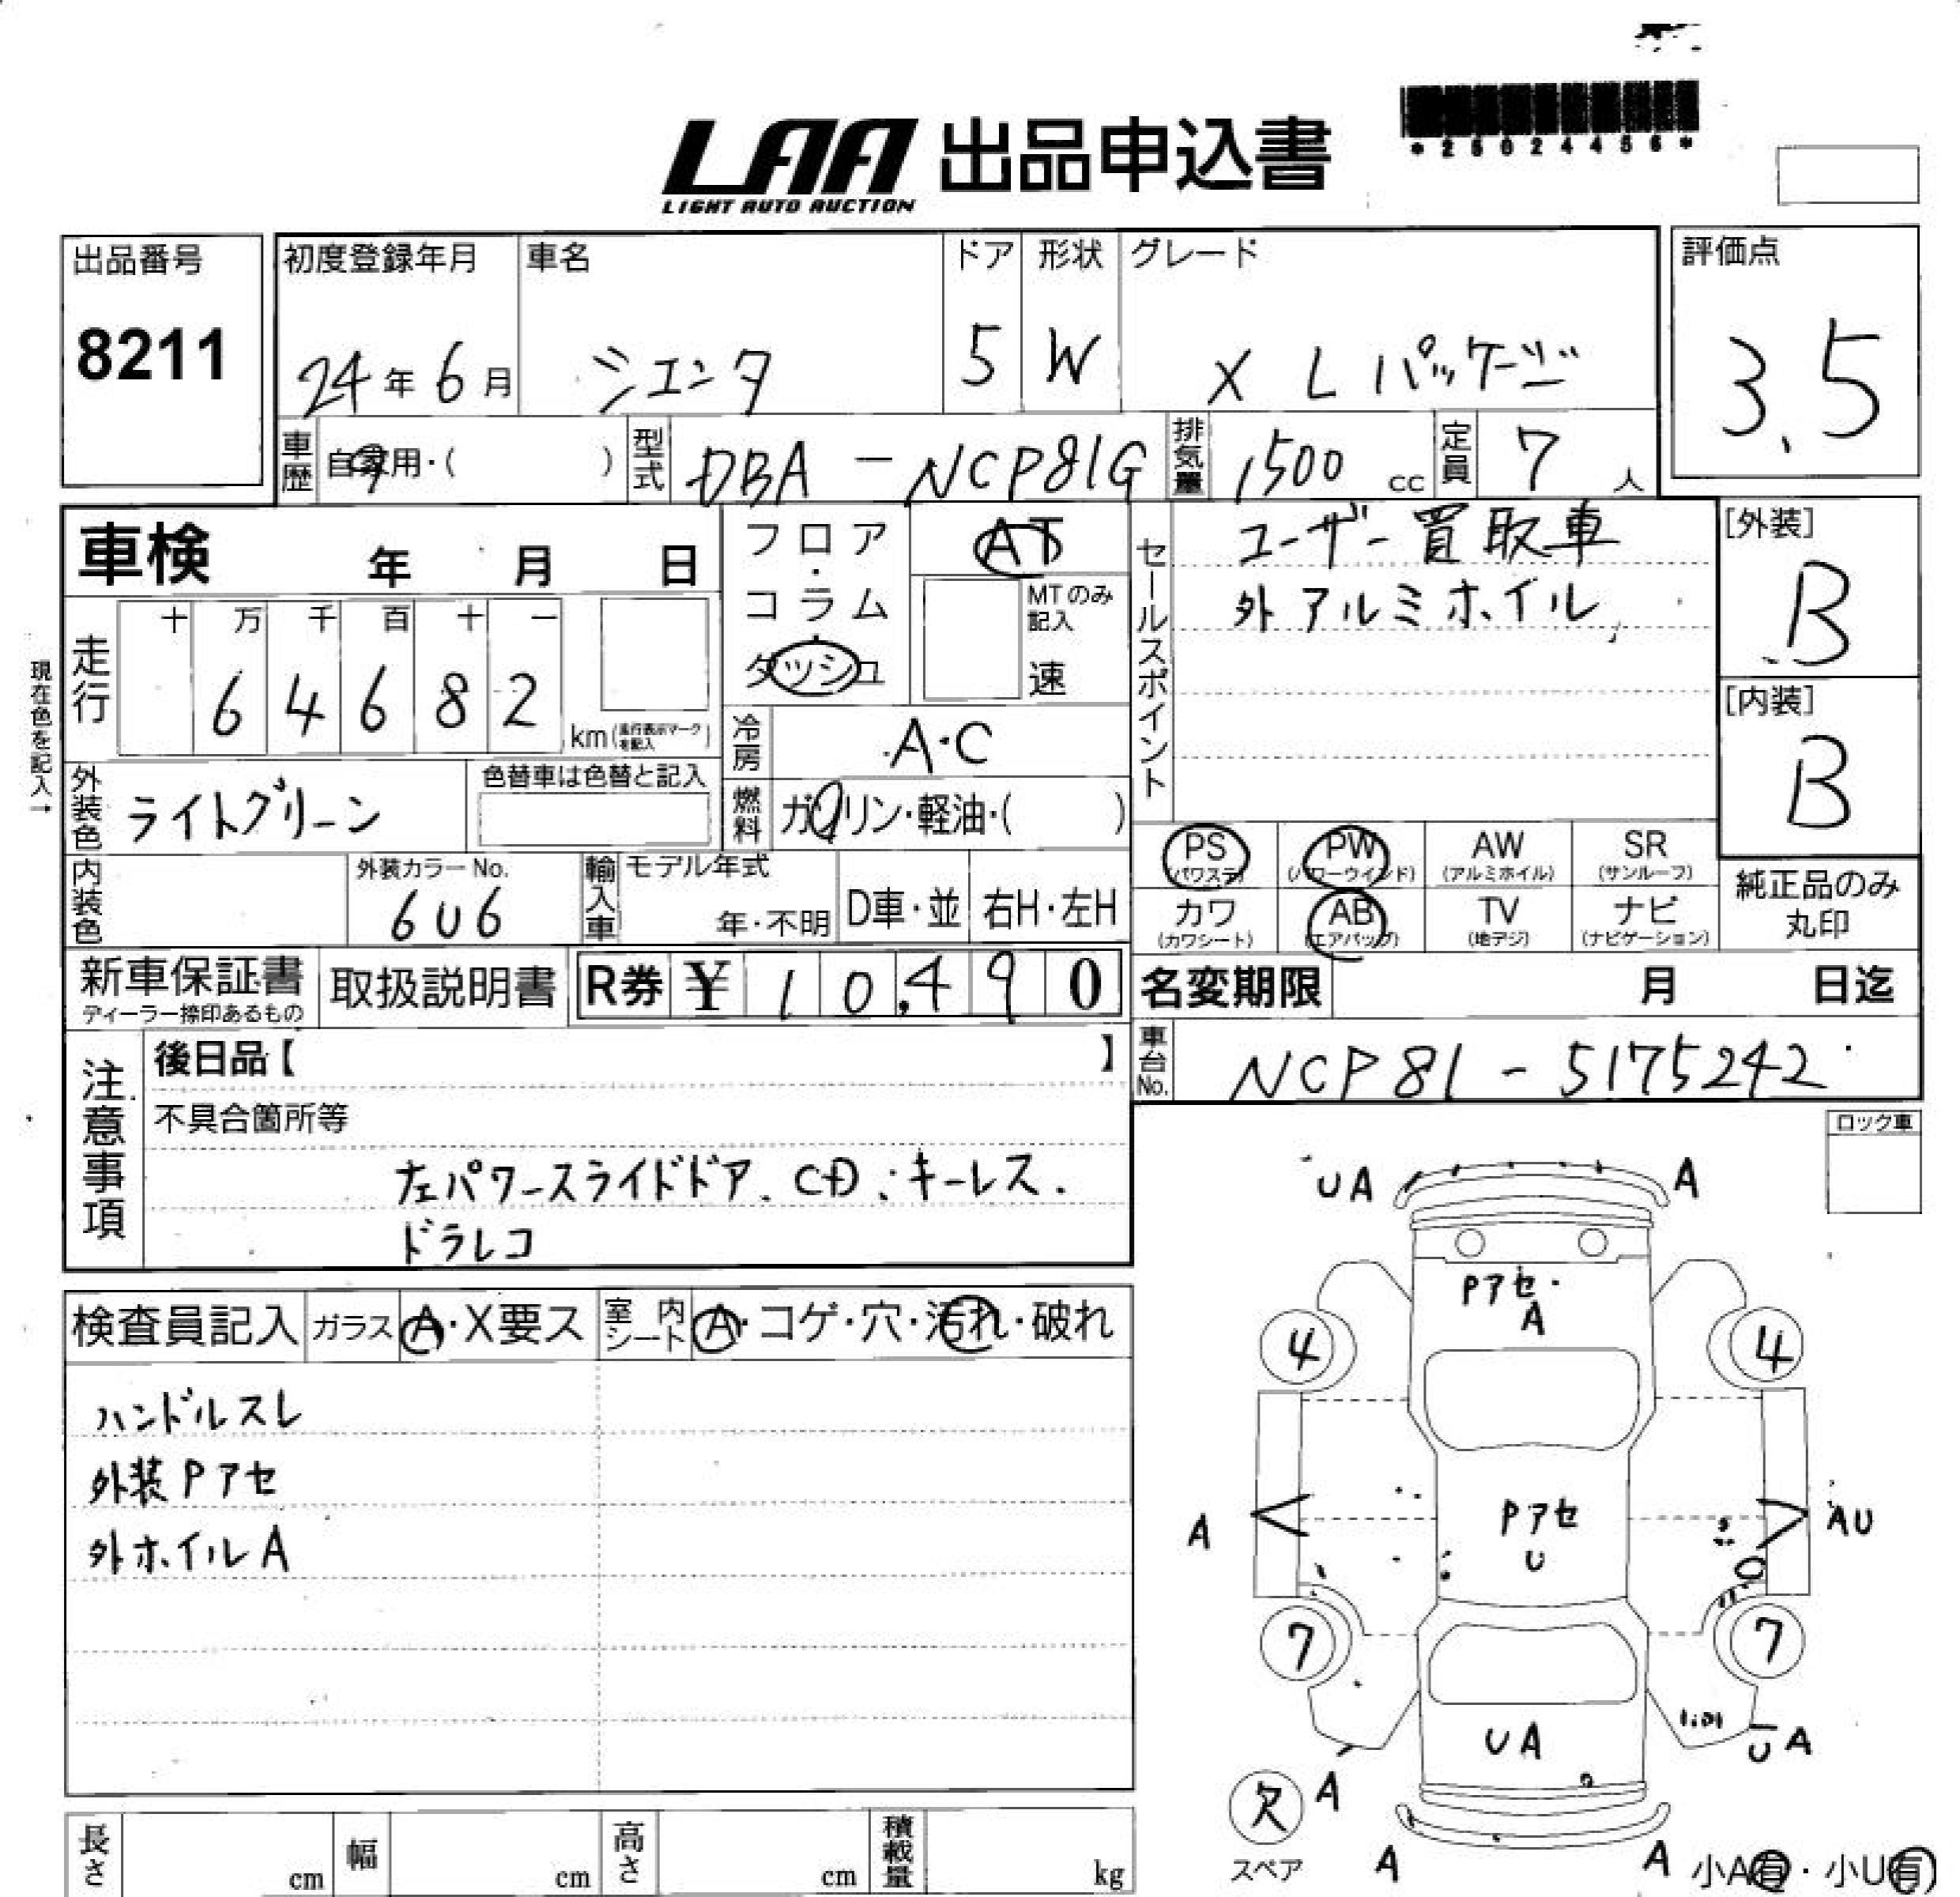 LAA 出品申込書
LIGHT AUTO AUCTION
*25024456*
出品番号
8211
初度登録年月
24年6月
車名
シエンタ
ドア
5
形状
W
グレード
X Lパッケージ
評価点
3.5
車歴
自家用・( )
型式
DBA-NCP81G
排気量
1500 cc
定員
7 人
車検 年 月 日
現在色を記入→
走行
十 万 千 百 十 一
6 4 6 8 2
km (走行表示マークを記入)
フロア・コラム・ダッシュ
AT
MTのみ記入
速
冷房
A・C
燃料
ガソリン・軽油・( )
セールスポイント
ユーザー買取車
外アルミホイル
[外装]
B
[内装]
B
外装色
ライトグリーン
色替車は色替と記入
内装色
外装カラーNo.
6U6
輸入車
モデル年式
年・不明
D車・並
右H・左H
PS
(パワステ)
PW
(パワーウインド)
AW
(アルミホイル)
SR
(サンルーフ)
カワ
(カワシート)
AB
(エアバッグ)
TV
(地デジ)
ナビ
(ナビゲーション)
純正品のみ
丸印
新車保証書
ディーラー捺印あるもの
取扱説明書
R券 ¥ 10,490
名変期限 月 日迄
車台No.
NCP81-5175242
注意事項
後日品【 】
不具合箇所等
左パワースライドドア.CD.キーレス.
ドラレコ
ロック車
検査員記入
ガラス
A・X要ス
室内シート
A・コゲ・穴・汚れ・破れ
ハンドルスレ
外装Pアセ
外ホイルA
UA
A
Pアセ・
A
4
4
A
Pアセ
U
AU
7
7
UA
UA
A
欠
スペア
A
A
小A有・小U有)
長さ
cm
幅
cm
高さ
cm
積載量
kg